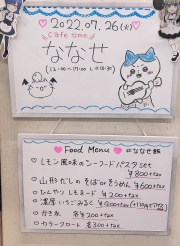 2022.07.26(火)
Cafe time
ななせ
(12:00~17:00 L.O 16:30)
Food Menu #ななせ飯
レモン風味のシーフードパスタset
¥800+tax
山形だしのそばorそうめん ¥600+tax
ひんやりレモネード ¥200+tax
濃厚いちごみるく ¥200+tax
かき氷 各¥200+tax
カラーフロート 各300+tax